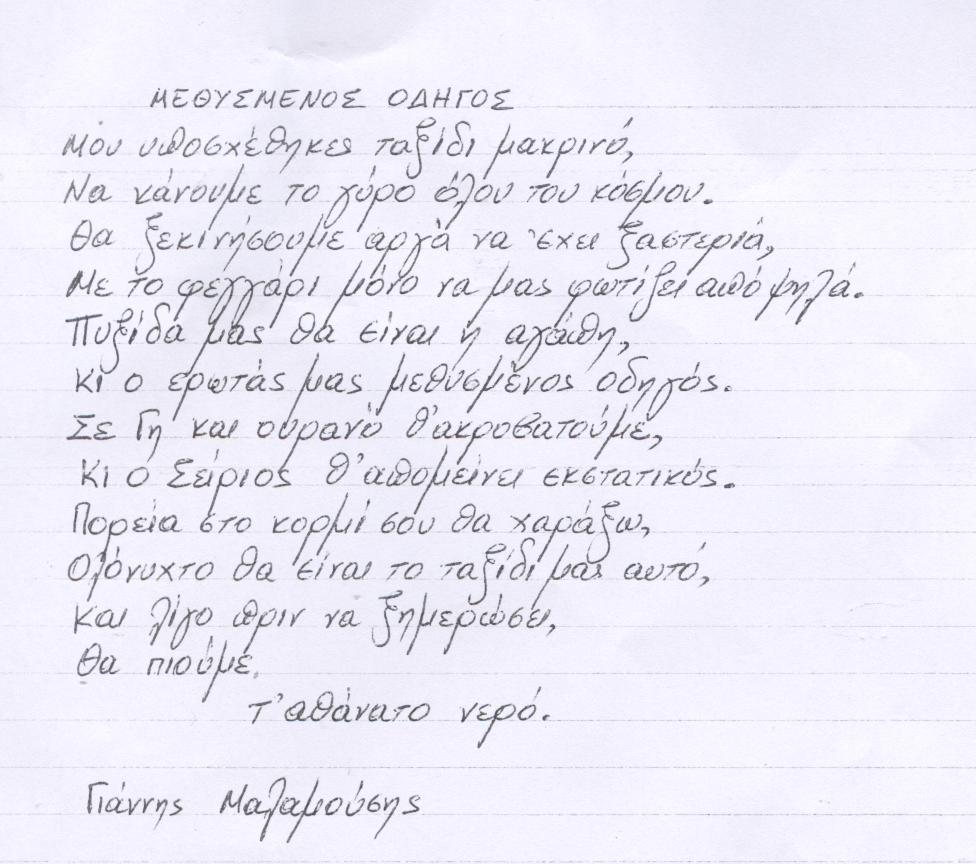 ΜΕΘΥΣΜΕΝΟΣ ΟΔΗΓΟΣ
Μου υποσχέθηκες ταξίδι μακρινό,
Να κάνουμε το γύρο όλου του κόσμου.
Θα ξεκινήσουμε αργά να έχει ξαστεριά,
Με το φεγγάρι μόνο να μας φωτίζει από ψηλά.
Πυξίδα μας θα είναι η αγάπη,
κι ο ερωτάς μας μεθυσμένος οδηγός.
Σε Γη και ουρανό θ'ακροβατούμε,
Κι ο Σείριος θ'απομείνει εκστατικός.
Πορεία στο κορμί σου θα χαράξω,
Ολόνυχτο θα είναι το ταξίδι μας αυτό,
Και λίγο πριν να ξημερώσει,
Θα πιούμε.
τ'αθάνατο νερό.
Γιάννης Μαλαμούσης